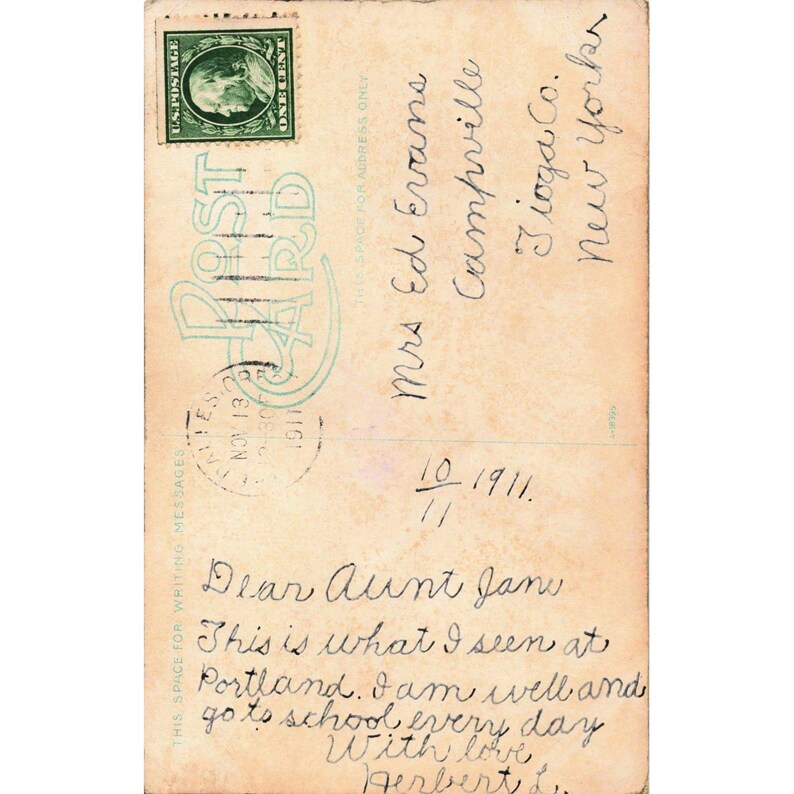 U.S. POSTAGE
ONE CENT
POST
CARD
THIS SPACE FOR ADDRESS ONLY.
DALLES, OREG.
NOV 13
1911
Mrs Ed Evans
Campville
Tioga Co.
New York
A-18395
THIS SPACE FOR WRITING MESSAGES
10/11 1911.
Dear Aunt Jane
This is what I seen at
Portland. I am well and
go to school every day
With love
Herbert L.